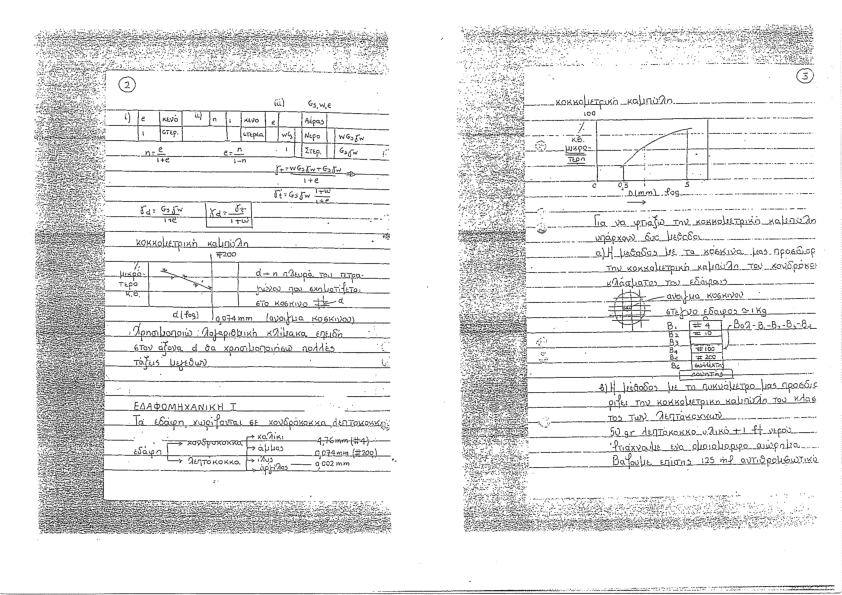 2
iii) Gs, w, e
i) e κενό ii) n i κενο e Αέρας
1 στερ. στερεα wGs Νερο wGsγw
1 Στερ. Gsγw
n = e/1+e e = n/1-n
γt = wGsγw + Gsγw / 1+e
γt = Gsγw 1+w/1+e
γd = Gsγw/1+e γd = γt/1+w
κοκκομετρική καμπύλη
#200
% μικρο-τερο κ.β.
d → η πλευρά του τετρα-
γώνου που σχηματίζεται
στο κοσκινο # d
d (log) 0,074 mm (ανοιγμα κοσκινου)
Χρησιμοποιώ λογαριθμική κλίμακα επειδή
στον άξονα d θα χρησιμοποιήσω πολλές
τάξεις μεγεθών
ΕΔΑΦΟΜΗΧΑΝΙΚΗ Ι
Τα εδάφη χωρίζονται σε χονδρόκοκκα λεπτοκοκκα
εδάφη
χονδροκοκκα
χαλίκι
άμμος
4,76 mm (#4)
0,074 mm (#200)
λεπτόκοκκα
ιλυς
άργιλος
0,002 mm
3
κοκκομετρική καμπύλη
100
% κ.β. μικρο-τερη
0 0,3 1 5
D(mm) log
Για να φτιάξω την κοκκομετρική καμπύλη
υπάρχουν δυο μεθοδοι
α) Η μεθοδος με τα κοσκινα μας προσδιορ
την κοκκομετρική καμπύλη του χονδρόκοκ
κλάσματος του εδάφους
ανοιγμα κοσκινου
στεγνο εδαφος ≈ 1 Kg
B1 #4 Bολ-B1-B2-B3-B4
B2 #10
B3
B4 #100
B5 #200
B6
δονητης
β) Η μέθοδος με το πυκνόμετρο μας προσδιο
ρίζει την κοκκομετρικη καμπύλη του κλασ
τος των λεπτόκοκκων
50 gr λεπτοκοκκο υλικό + 1 lt νερού
Φτιάχνουμε ενα ομοιομορφο αιώρημα
Βαζουμε επίσης 125 ml αντιθρομβωτικό